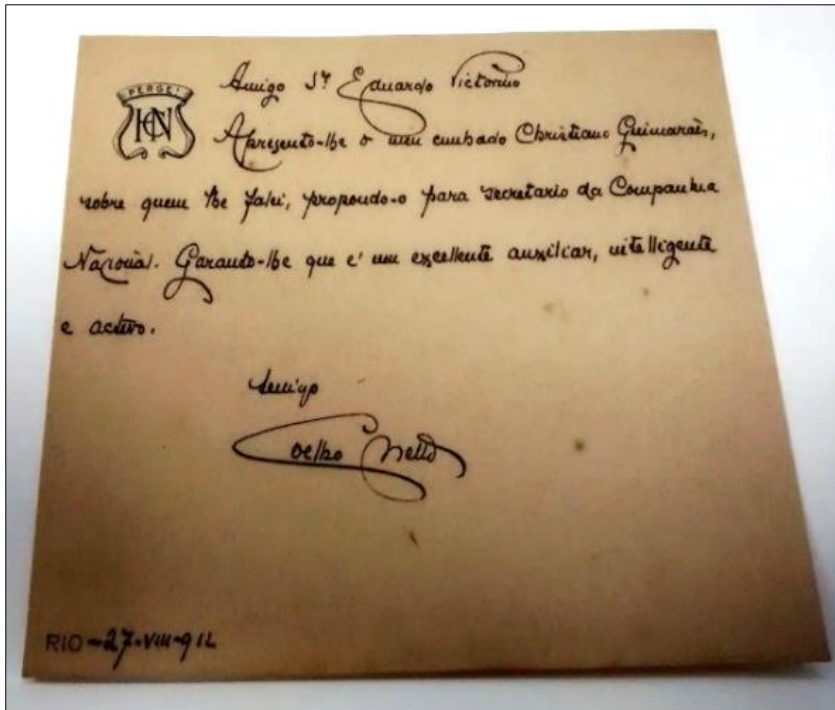 PERGE!
HCN
Amigo Sr. Eduardo Victorino
Apresento-lhe o meu cunhado Christiano Guimarães,
sobre quem lhe falei, propondo-o para secretario da Companhia
Nacional. Garanto-lhe que e' um excellente auxiliar, intelligente
e activo.
Amigo
Coelho Netto
RIO-27-VIII-912